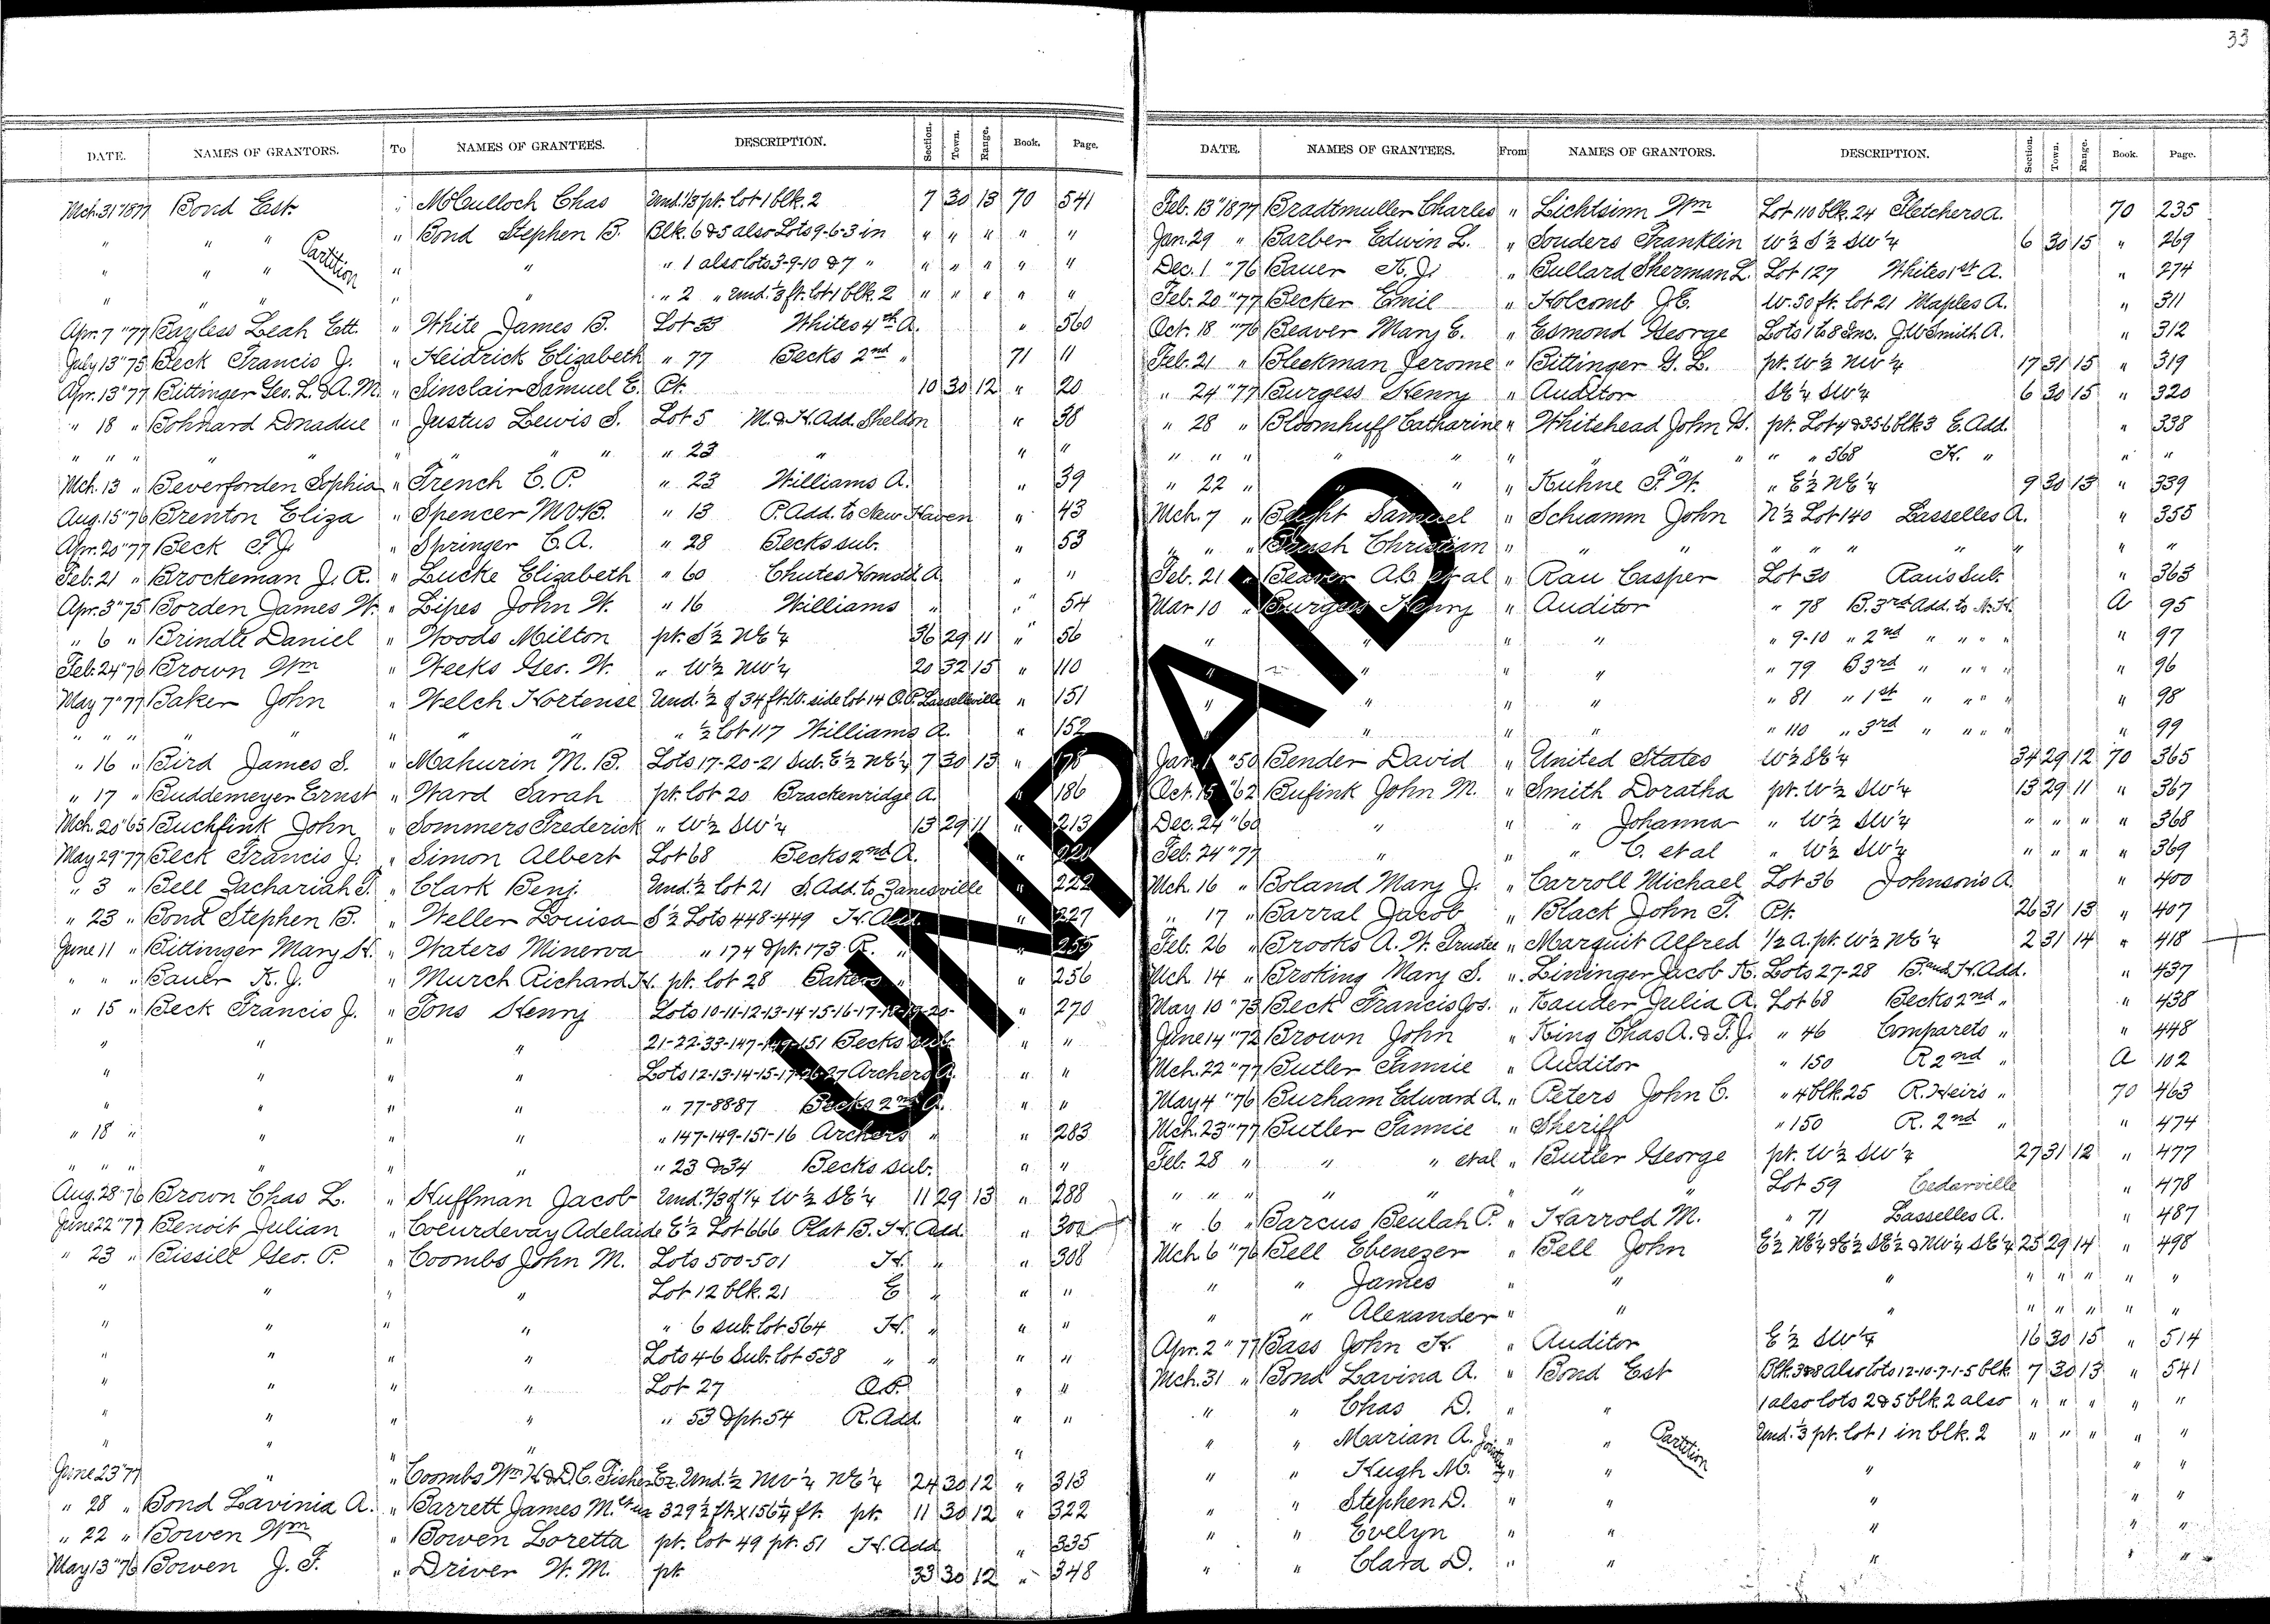 33
DATE. NAMES OF GRANTORS. To NAMES OF GRANTEES. DESCRIPTION. Section. Town. Range. Book. Page.
Mch. 31 1877 Bond Est. " McCulloch Chas Und. 1/3 pt. lot 1 blk. 2 7 30 13 70 541
" " " " Bond Stephen B. Blk. 6 & 5 also Lots 9-6-3 in " " " " "
" " " Partition " " " 1 also lots 3-9-10 & 7 " " " " " "
" " " " " " 2 " Und. 1/3 ft. lot 1 blk. 2 " " " " "
Apr. 7 "77 Bayless Leah Ett. " White James B. Lot 33 Whites 4th A. " 560
July 13 "75 Beck Francis J. " Heidrick Elizabeth " 77 Becks 2nd " 71 11
Apr. 13 "77 Bittinger Geo. L. & A. M. " Sinclair Samuel E. Pt. 10 30 12 " 20
" 18 " Bohnard Donadue " Justus Lewis S. Lot 5 M. & H. Add. Sheldon " 38
" " " " " " " " " 23 " " "
Mch. 13 " Beverforden Sophia " French C. P. " 23 Williams A. " 39
Aug. 15 "76 Brenton Eliza " Spencer M V B. " 13 P. Add. to New Haven " 43
Apr. 20 "77 Beck F J. " Springer C. A. " 28 Becks sub. " 53
Feb. 21 " Brockeman J. R. " Lucke Elizabeth " 60 Chutes Homstd. A " "
Apr. 3 "75 Borden James W. " Lipes John W. " 16 Williams " " 54
" 6 " Brindle Daniel " Woods Milton pt. S ½ NE ¼ 36 29 11 " 56
Feb. 24 "76 Brown Wm " Weeks Geo. W. " W ½ NW ¼ 20 32 15 " 110
May 7 "77 Baker John " Welch Hortense Und. ½ of 34 ft. W. side lot 14 O. P. Lasselleville " 151
" " " " " " " " ½ lot 117 Williams A. " 152
" 16 " Bird James S. " Mahurin M. B. Lots 17-20-21 Sub. E ½ NE ¼ 7 30 13 " 178
" 17 " Buddemeyer Ernst " Ward Sarah pt. lot 20 Brackenridge A. " 186
Mch. 20 "65 Buchfink John " Sommers Frederick " W ½ SW ¼ 13 29 11 " 213
May 29 "77 Beck Francis J. " Simon Albert Lot 68 Becks 2nd A. " 220
" 3 " Bell Zachariah T. " Clark Benj. Und. ½ lot 21 S. Add. to Zanesville " 222
" 23 " Bond Stephen B. " Weller Louisa S ½ Lots 448-449 H. Add. " 227
June 11 " Bittinger Mary H. " Waters Minerva " 174 & pt. 173 R. " " 255
" " " Bauer K. J. " Murch Richard H. pt. lot 28 Bakers " " 256
" 15 " Beck Francis J. " Tons Henry Lots 10-11-12-13-14-15-16-17-18-19-20- " 270
" " " " 21-22-33-147-149-151 Becks sub. " "
" " " " Lots 12-13-14-15-17-26-27 Archers A. " "
" " " " " 77-88-87 Becks 2nd A. " "
" 18 " " " " " 147-149-151-16 Archers " " 283
" " " " " " " 23 & 34 Becks sub. " "
Aug. 28 "76 Brown Chas L. " Huffman Jacob Und. 2/3 of ¼ W ½ SE ¼ 11 29 13 " 288
June 22 "77 Benoit Julian " Coeurdevay Adelaide E ½ Lot 666 Plat B. H. Add. " 300
" 23 " Bissill Geo. P. " Coombs John M. Lots 500-501 H. " " 308
" " " " Lot 12 blk. 21 E " " "
" " " " " 6 sub. lot 564 H. " " "
" " " " Lots 4-6 Sub. lot 538 " " " "
" " " " Lot 27 O. P. " "
" " " " " 53 & pt. 54 R. Add. " "
" " " " "
June 23 "77 " " Coombs Wm H. & D. C. Fisher Ex. Und. ½ NW ¼ NE ¼ 24 30 12 " 313
" 28 " Bond Lavinia A. " Barrett James M. et ux 329 ½ ft. X 156 ¼ ft. pt. 11 30 12 " 322
" 22 " Bowen Wm " Bowen Loretta pt. lot 49 pt. 51 H. Add " 335
May 13 "76 Bowen J. F. " Driver W. M. pt. 33 30 12 " 348
DATE. NAMES OF GRANTEES. From NAMES OF GRANTORS. DESCRIPTION. Section. Town. Range. Book. Page.
Feb. 13 "1877 Bradtmuller Charles " Lichtsinn Wm Lot 110 blk. 24 Fletchers A. 70 235
Jan. 29 " Barber Edwin L. " Souders Franklin W ½ S ½ SW ¼ 6 30 15 " 269
Dec. 1 "76 Bauer K. J. " Bullard Sherman L. Lot 127 Whites 1st A. " 274
Feb. 20 "77 Becker Emil " Holcomb J E. W. 30 ft. lot 21 Maples A. " 311
Oct. 18 "76 Beaver Mary E. " Esmond George Lots 1 to 8 Inc. J. W Smith A. " 312
Feb. 21 " Bleckman Jerome " Bittinger G. L. pt. W ½ NW ¼ 17 31 15 " 319
" 24 "77 Burgess Henry " Auditor SE ¼ SW ¼ 6 30 15 " 320
" 28 " Bloomhuff Catharine " Whitehead John G. pt. Lot 4 & 3 5 6 blk 3 E. Add. " 338
" " " " " " " " " " 568 H. " " "
" 22 " " " " Kuhne F. W. " E ½ NE ¼ 9 30 13 " 339
Mch. 7 " Beght Samuel " Schramm John N ½ Lot 140 Lasselles A. " 355
" " " Brush Christian " " " " " " " " " "
Feb. 21 " Beaver A. C. et al " Rau Casper Lot 30 Rau's Sub. " 363
Mar 10 " Burgess Henry " Auditor " 78 B. 3rd Add. to N. H. A 95
" " " " " 9-10 " 2nd " " " " " 97
" " " " " 79 B 3rd " " " " " 96
" " " " " 81 " 1st " " " " " 98
" " " " " 110 " 3rd " " " " " 99
Jan. 1 "50 Bender David " United States W ½ SE ¼ 34 29 12 70 365
Oct. 15 "62 Bufink John M. " Smith Doratha pt. W ½ SW ¼ 13 29 11 " 367
Dec. 24 "60 " " " Johanna " W ½ SW ¼ " " " " 368
Feb. 24 "77 " " " C. et al " W ½ SW ¼ " " " " 369
Mch. 16 " Boland Mary J. " Carroll Michael Lot 36 Johnson's A " 400
" 17 " Barral Jacob " Black John T. Pt. 26 31 13 " 407
Feb. 26 " Brooks A. W. Trustee " Marquit Alfred 1/2 A. pt. W ½ NE ¼ 2 31 14 " 418
Mch. 14 " Broking Mary S. " Lininger Jacob K. Lots 27-28 B. and H. Add. " 437
May 10 "73 Beck Francis Jos. " Kauder Julia A. Lot 68 Becks 2nd " " 438
June 14 "72 Brown John " King Chas A. & F. J. " 46 Comparets " " 448
Mch. 22 "77 Butler Fannie " Auditor " 150 R 2nd " A 102
May 4 "76 Burham Edward A. " Peters John C. " 4 blk. 25 R. Heirs " 70 463
Mch. 23 "77 Butler Fannie " Sheriff " 150 R. 2nd " " 474
Feb. 28 " " " et al " Butler George pt. W ½ SW ¼ 27 31 12 " 477
" " " " " " " " Lot 59 Cedarville " 478
" 6 " Barcus Beulah P. " Harrold M. " 71 Lasselles A. " 487
Mch 6 "76 Bell Ebenezer " Bell John E ½ NE ¼ & E ½ SE ¼ & NW ¼ SE ¼ 25 29 14 " 498
" " James " " " " " " " "
" " Alexander " " " " " " " "
Apr. 2 "77 Bass John H. " Auditor E ½ SW ¼ 16 30 15 " 514
Mch. 31 " Bond Lavina A. " Bond Est Blk. 3 & 8 also lots 12-10-7-1-5 blk. 7 30 13 " 541
" " Chas D. " " 1 also lots 2 & 5 blk. 2 also " " " " "
" " Marian A. Jointly " " Partition Und. 1/3 pt. lot 1 in blk. 2 " " " " "
" " Hugh M. " " " " "
" " Stephen D. " " " " "
" " Evelyn " " " " "
" " Clara D. " " " " "
UNPAID